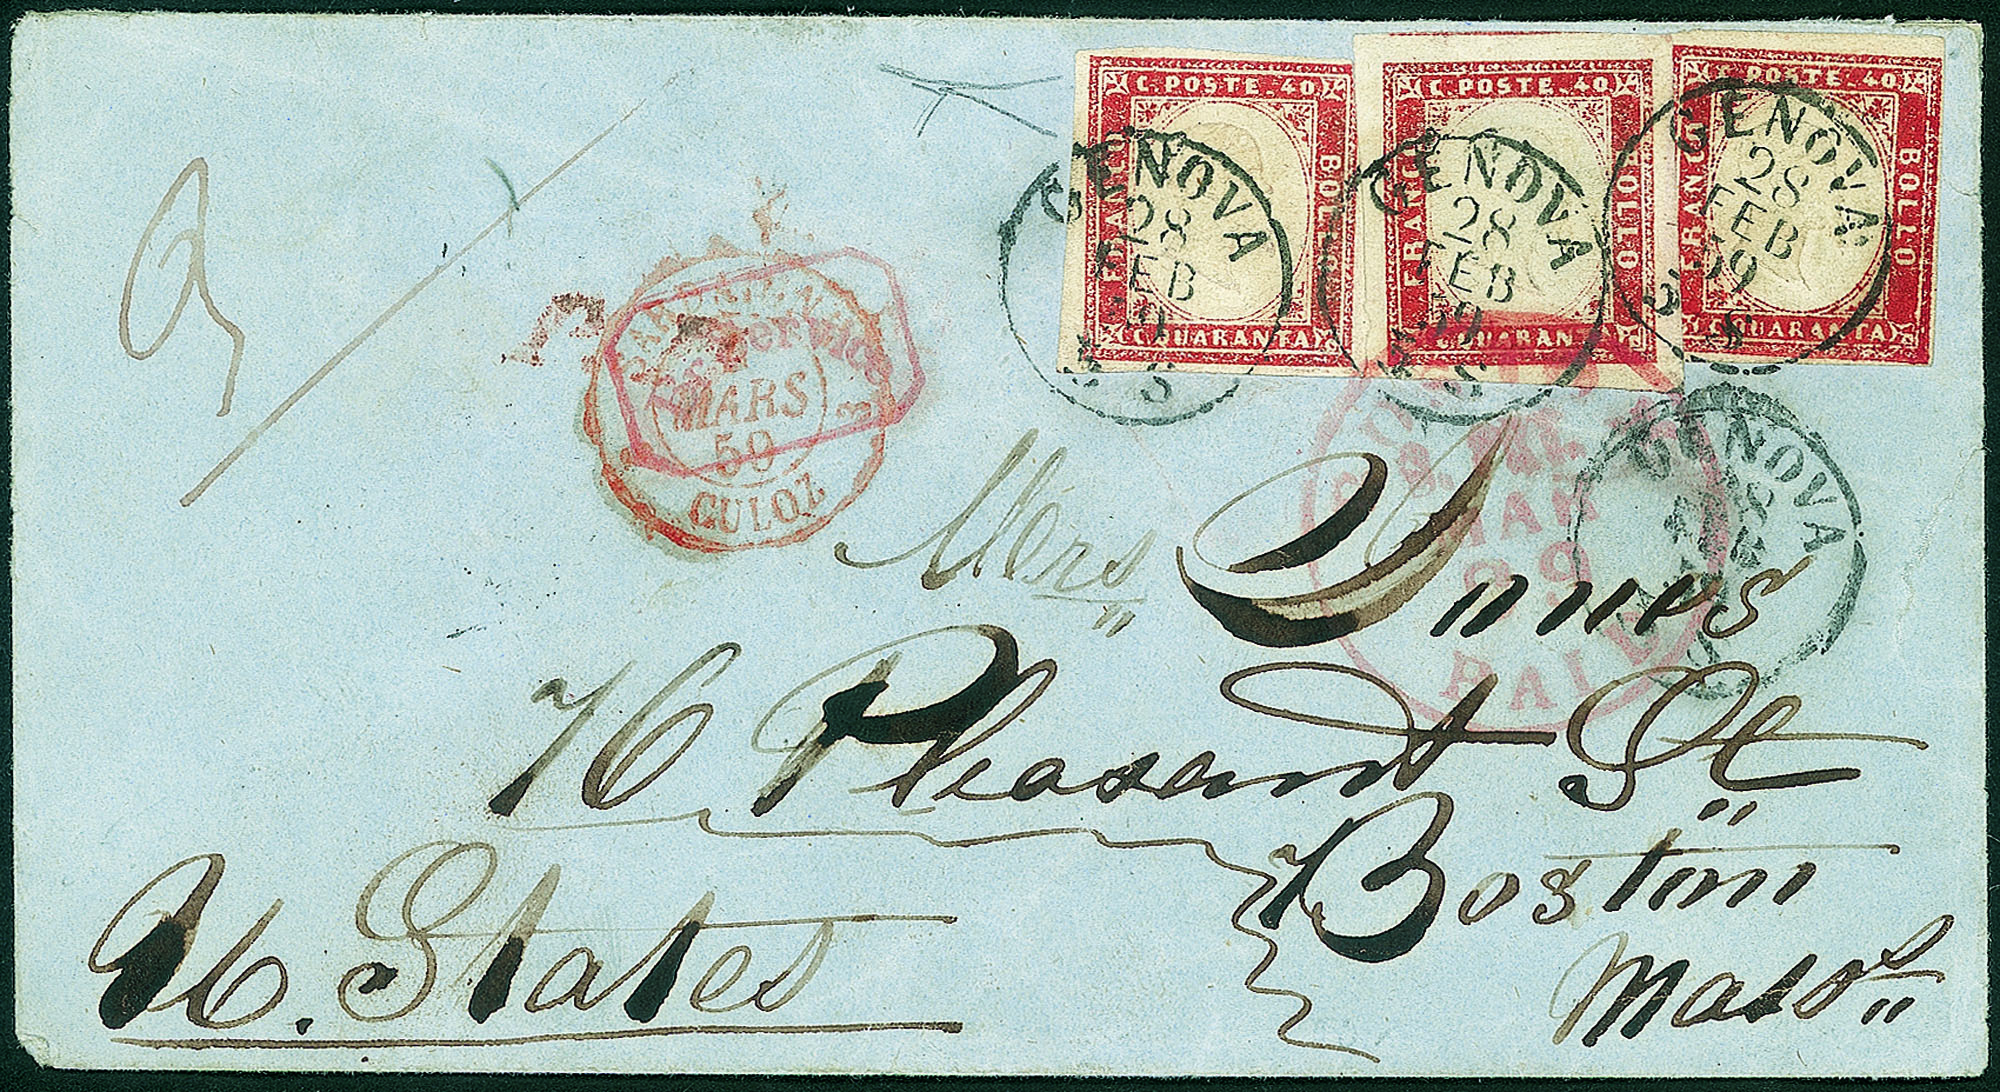 C. POSTE. 40
FRANCO
BOLLO
C. QUARANTA
C. POSTE. 40
FRANCO
BOLLO
C. QUARANTA
C. POSTE. 40
FRANCO
BOLLO
C. QUARANTA
GENOVA
28
FEB
59
GENOVA
28
FEB
59
GENOVA
28
FEB
59
GENOVA
28
MARS
59
CULOZ
MAR
PAID
Mrs Innes
76 Pleasant St
Boston
Mass
U. States